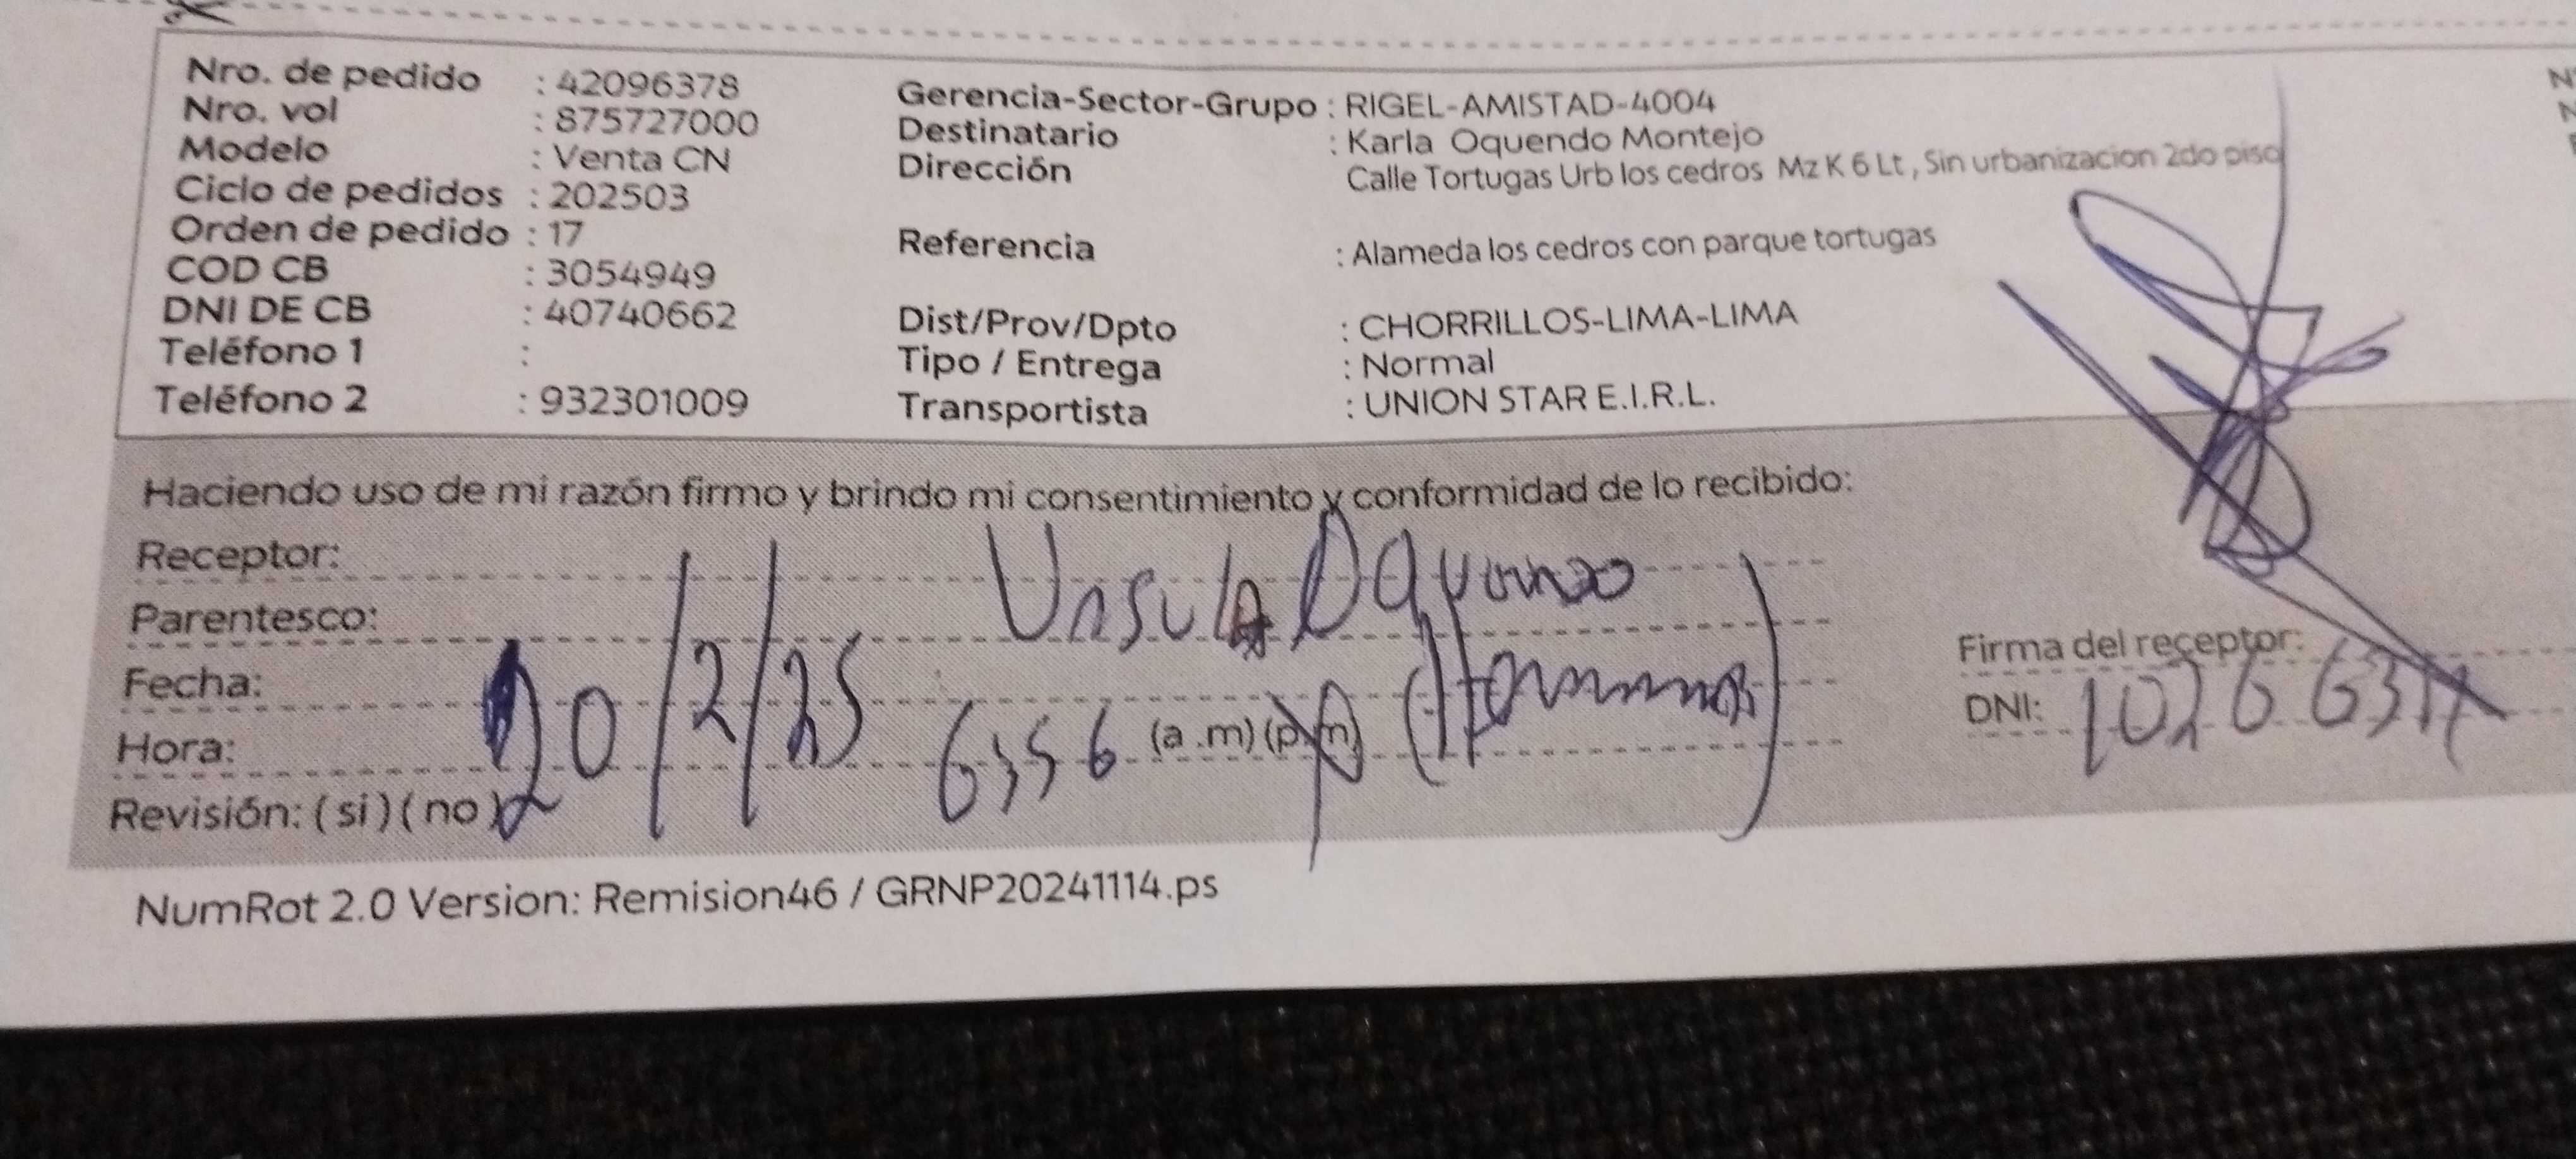 Nro. de pedido : 42096378
Nro. vol : 875727000
Modelo : Venta CN
Ciclo de pedidos : 202503
Orden de pedido : 17
COD CB : 3054949
DNI DE CB : 40740662
Teléfono 1 :
Teléfono 2 : 932301009
Gerencia-Sector-Grupo : RIGEL-AMISTAD-4004
Destinatario : Karla Oquendo Montejo
Dirección Calle Tortugas Urb los cedros Mz K 6 Lt , Sin urbanizacion 2do piso
Referencia : Alameda los cedros con parque tortugas
Dist/Prov/Dpto : CHORRILLOS-LIMA-LIMA
Tipo / Entrega : Normal
Transportista : UNION STAR E.I.R.L.
Haciendo uso de mi razón firmo y brindo mi consentimiento y conformidad de lo recibido:
Receptor: Ursula
Parentesco:
Fecha: 20/2/25
Hora: (a .m) (p.m)
Revisión: ( si ) ( no )
Firma del receptor:
DNI:
NumRot 2.0 Version: Remision46 / GRNP20241114.ps